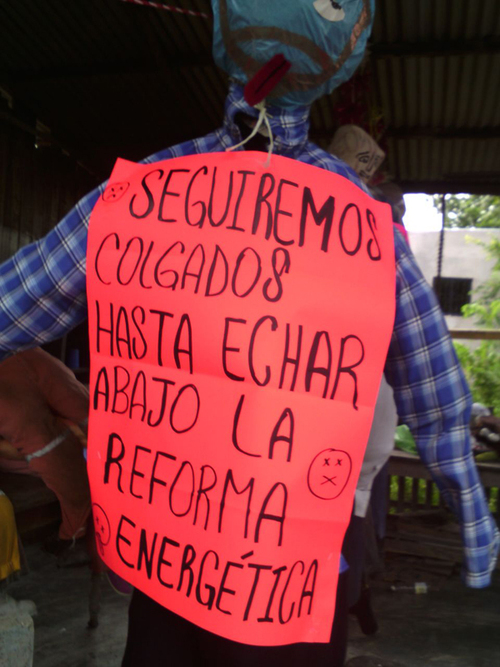 SEGUIREMOS
COLGADOS
HASTA ECHAR
ABAJO LA
REFORMA
ENERGÉTICA